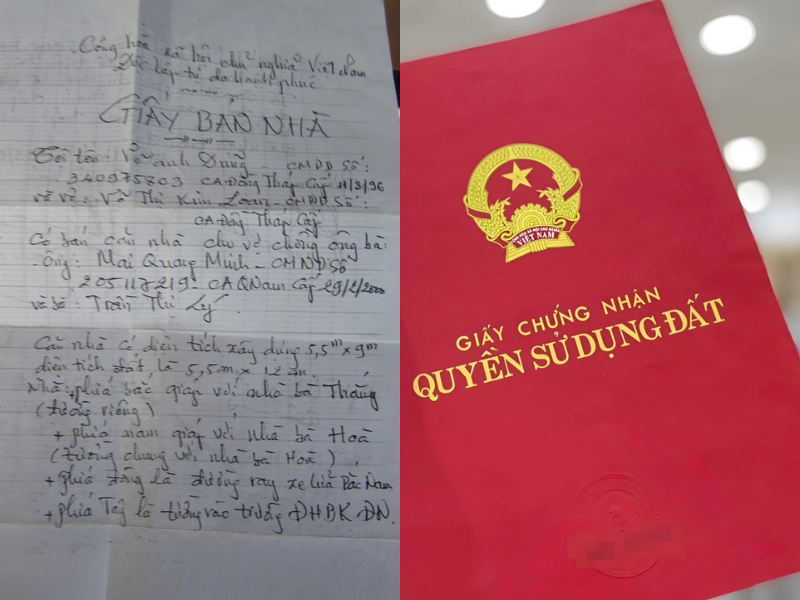 Cộng hòa xã hội chủ nghĩa Việt Nam
Độc lập tự do hạnh phúc
GIẤY BÁN NHÀ
Tôi tên: Võ anh Dũng - CMDD Số:
340975803 CA Đồng Tháp Cấp 11/3/96
và vợ: Võ Thị Kim Loan - CMND Số:
CA Đồng Tháp Cấp
Có bán căn nhà cho vợ chồng ông bà:
- Ông: Mai Quang Minh - CMND Số
205117219: CA QNam Cấp 29/2/2000
và bà: Trần Thị Lý.
Căn nhà có diện tích xây dựng 5,5m x 9m
diện tích đất là 5,5m x 12m.
Nhà: + phía bắc giáp với nhà bà Thắng
(tường riêng)
+ phía nam giáp với nhà bà Hoà
(tường chung với nhà bà Hoà).
+ phía đông là đường ray xe lửa Bắc Nam
+ phía Tây là tường rào trường ĐHBK ĐN.
CỘNG HÒA XÃ HỘI CHỦ NGHĨA
VIỆT NAM
GIẤY CHỨNG NHẬN
QUYỀN SỬ DỤNG ĐẤT